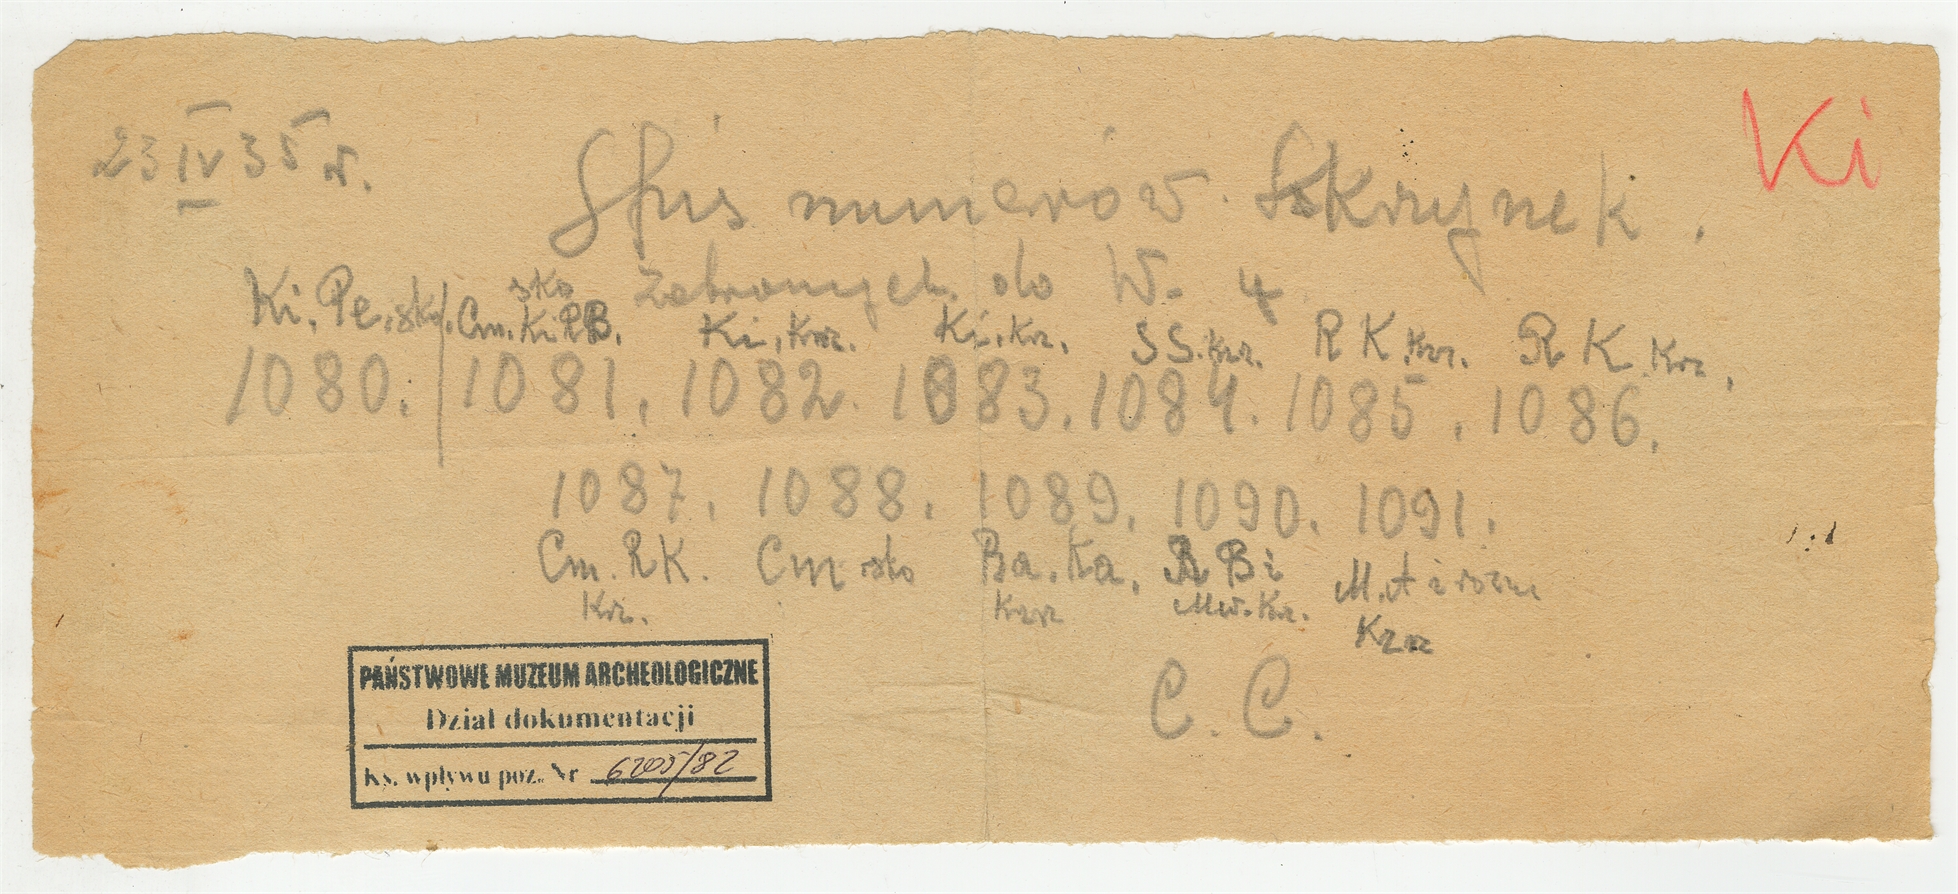 23 IV 35 r.
Ki
Spis numerów Skrzynek.
zabranych do W. 4
Ki. Pe. sko. Cm. Ki RB. sko Ki, Krz. Ki. Krz. SS. Krz. R K. Krz. R K. Krz.
1080. 1081, 1082. 1083. 1084. 1085. 1086.
1087. 1088. 1089. 1090. 1091.
Cm. RK. Cm sko Ba. Ka. R B i M. A i
Krz. Krz Mw. Kz. Krz
C. C.
PAŃSTWOWE MUZEUM ARCHEOLOGICZNE
Dział dokumentacji
Ks. wpływu poz. Nr 6205/82